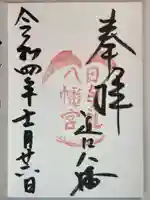 奉拝
近江八幡
日牟禮
八幡宮
令和四年十一月廿六日